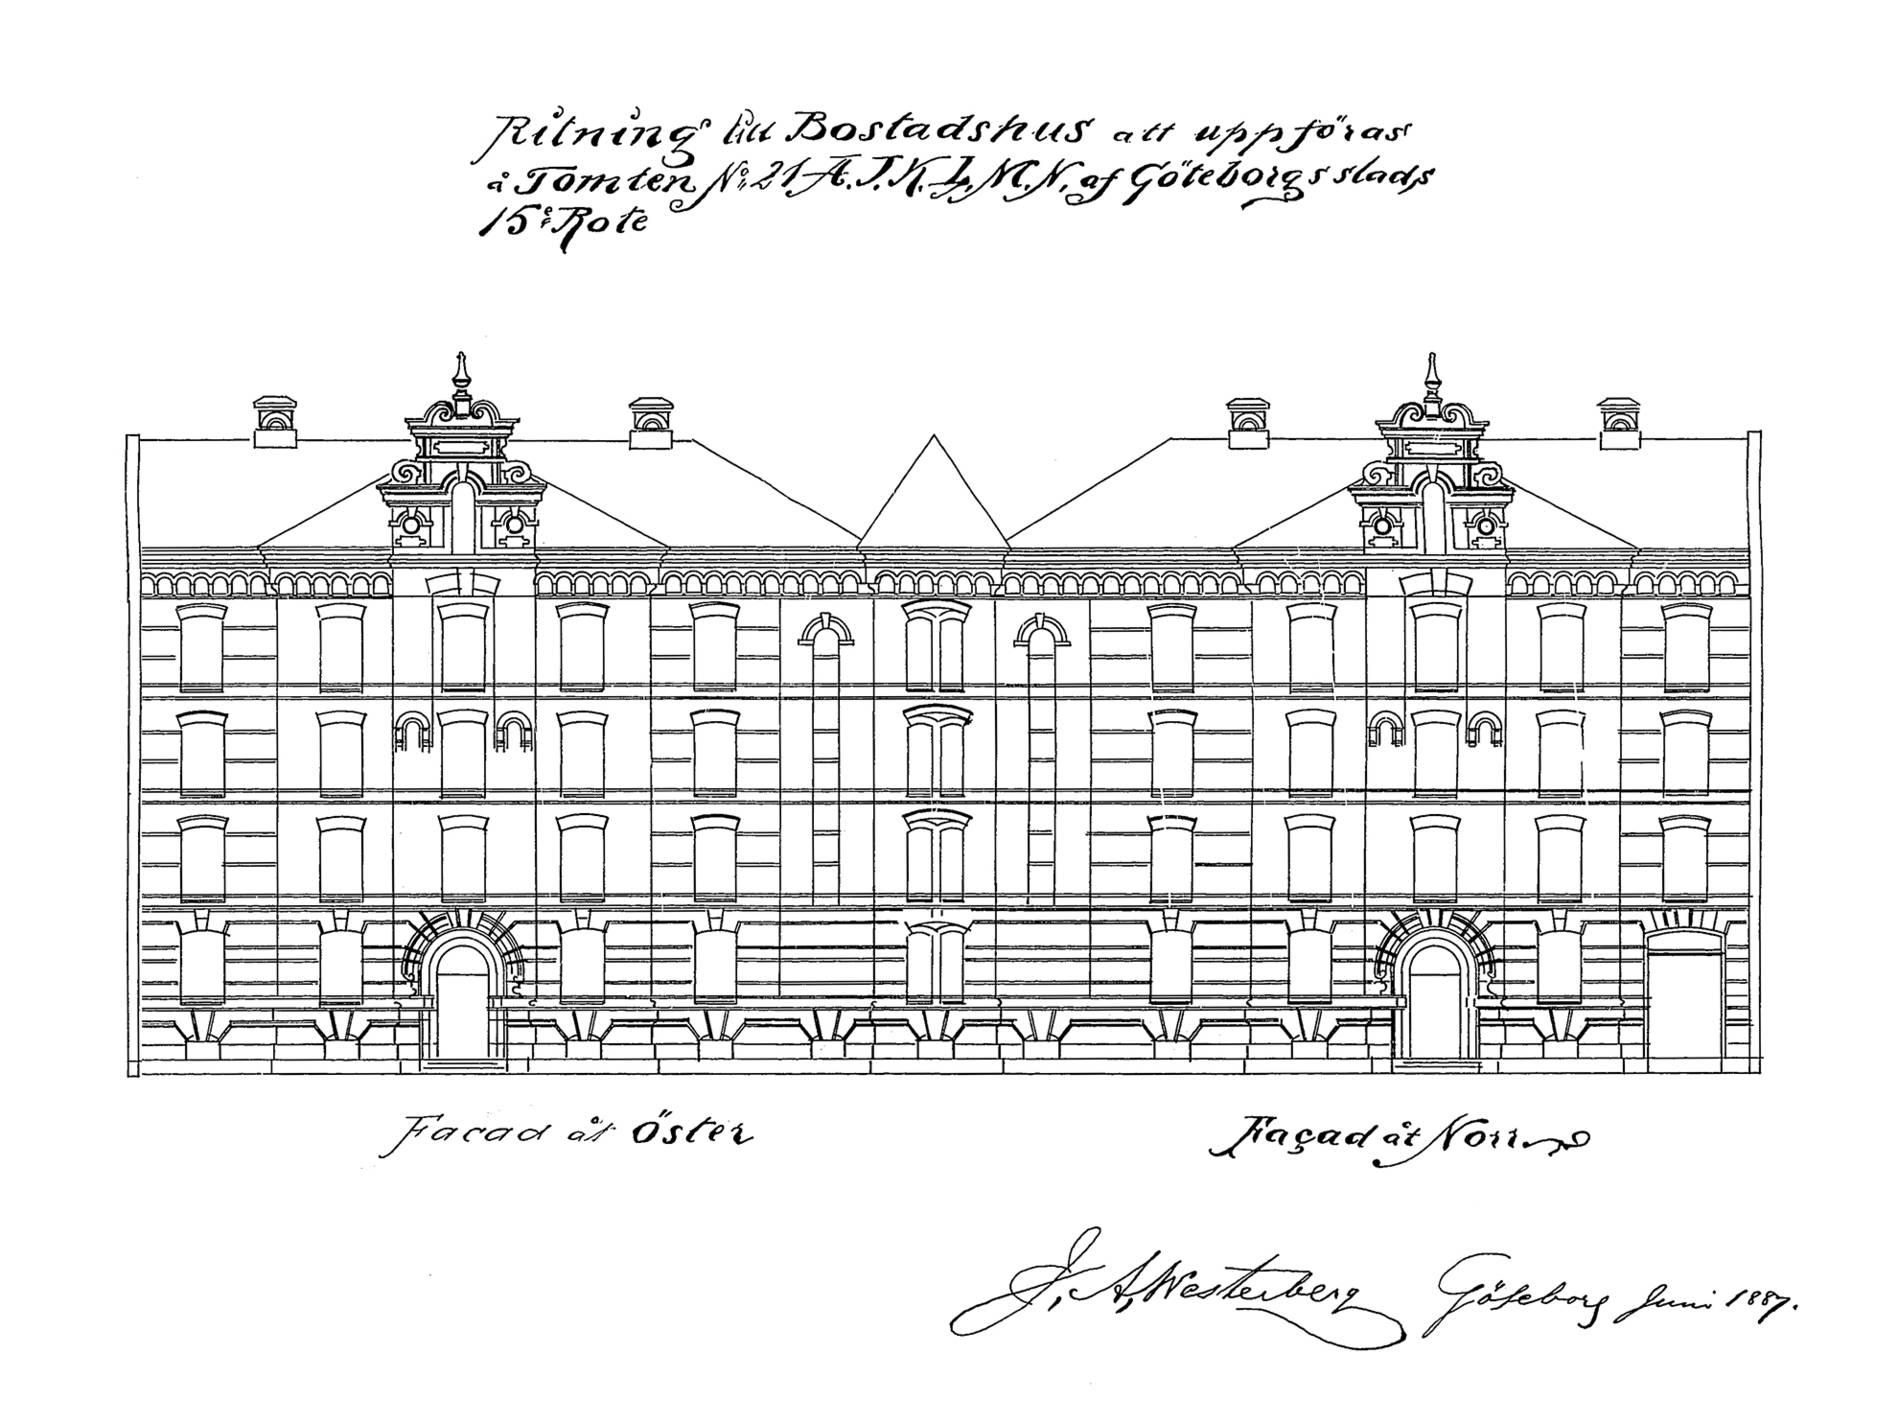 Ritning till Bostadshus att uppföras
å Tomten No 21 Ä. J. K. L. M. N. af Göteborgs stads
15de Rote
Facad åt Öster
Façad åt Norr
J. A. Westerberg Göteborg Juni 1887.